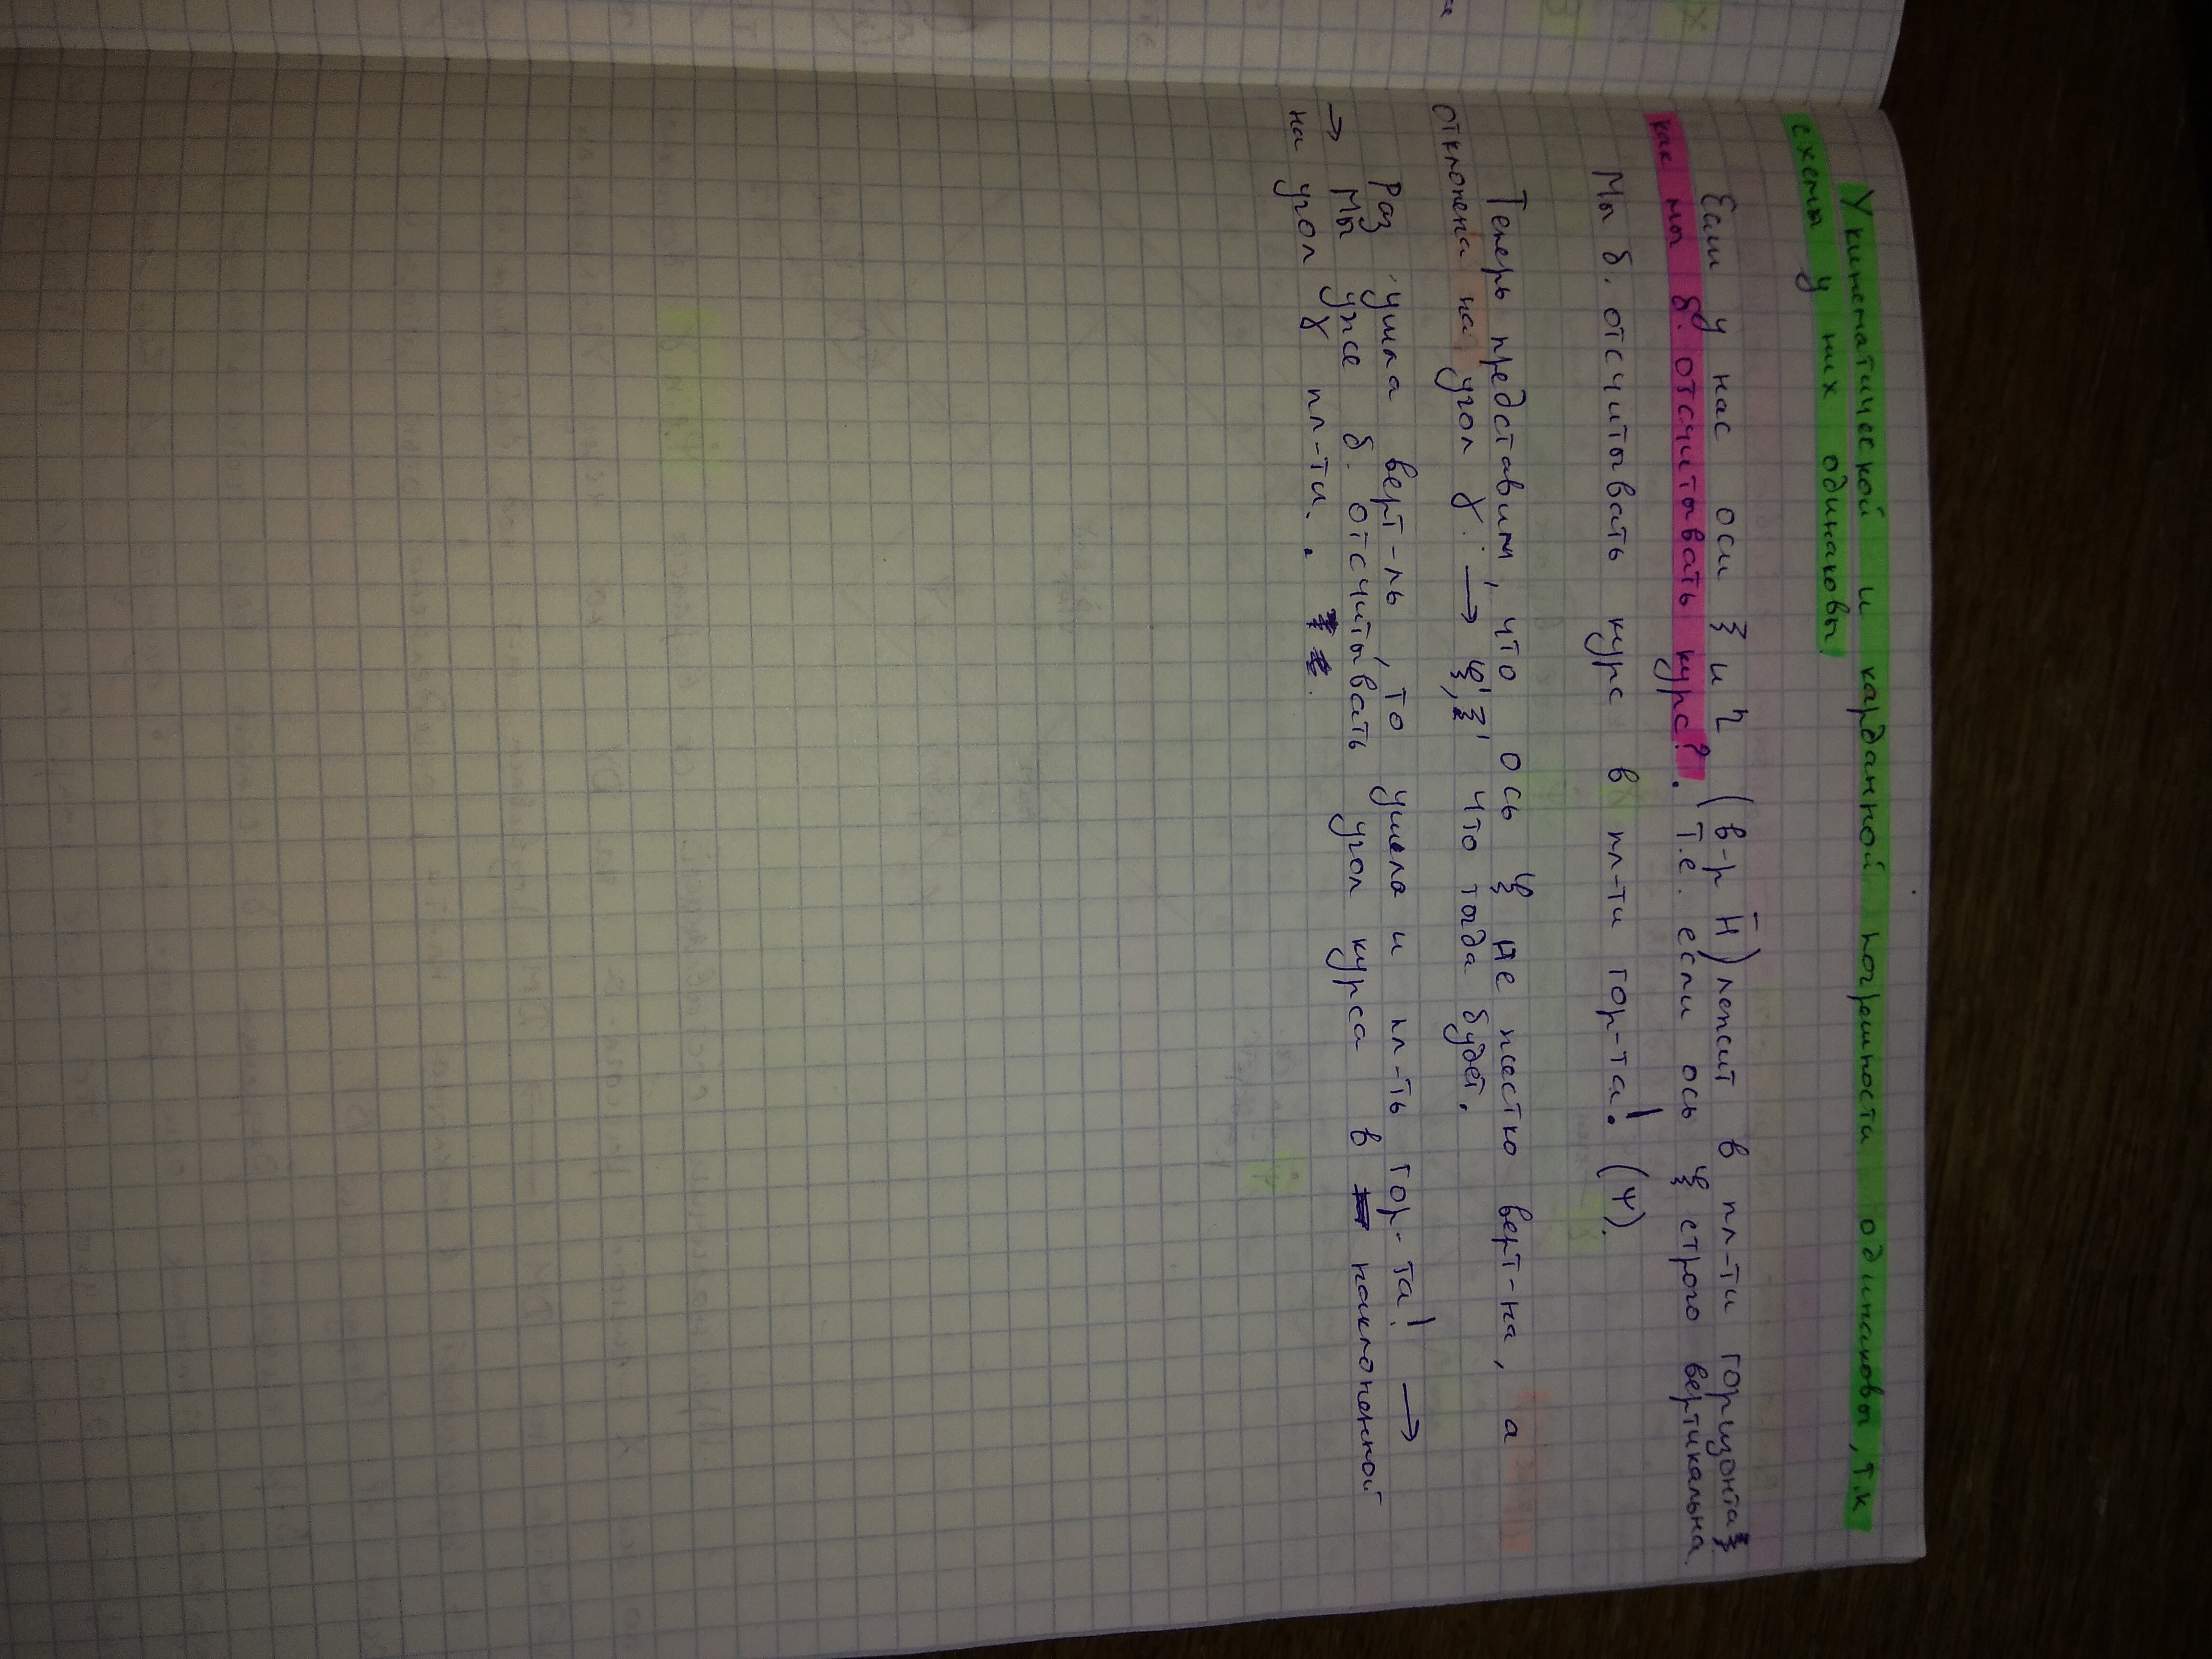 У кинематической и карданной погрешности одинаковы, т.к
схемы у них одинаковы!
Если у нас оси ξ и η (в-р H̄) лежит в пл-ти горизонта
как мы б. отсчитывать курс?. Т.е. если ось ξ строго вертикальна.
Мы б. отсчитывать курс в пл-ти гор-та! (Ψ).
Теперь представим, что ось ξ не жестко верт-на, а
отклонена на угол γ. → ξ', ξ' что тогда будет.
Раз ушла верт-ль, то ушла и пл-ть гор-та! →
→ Мы уже б. отсчитывать угол курса в наклоненной
на угол γ пл-ти.